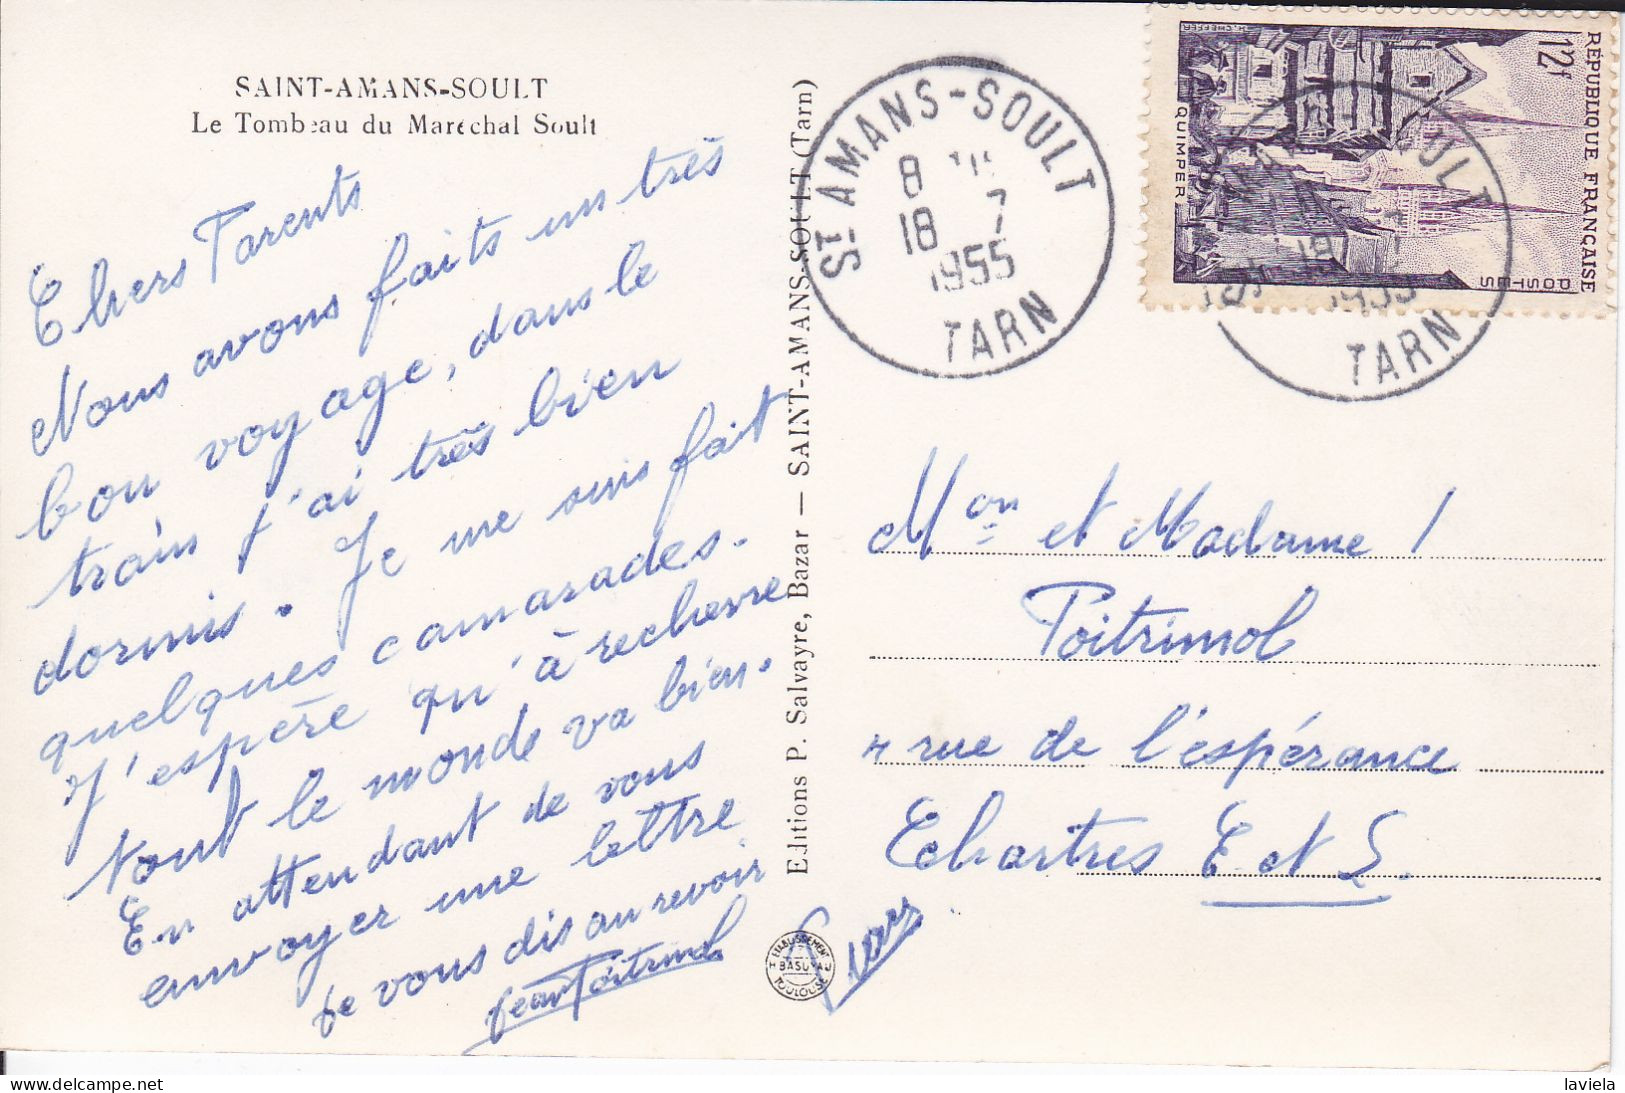 SAINT-AMANS-SOULT
Le Tombeau du Maréchal Soult
Chers Parents
Nous avons faits un très
bon voyage, dans le
train j'ai très bien
dormis. Je me suis fait
quelques camarades.
J'espère qu'à recherre
tout le monde va bien.
En attendant de vous
envoyer une lettre
je vous dis au revoir
Jean Poitrimol
Editions P. Salvayre, Bazar — SAINT-AMANS-SOULT (Tarn)
ETABLISSEMENT
BASUYAU
TOULOUSE
ST AMANS-SOULT
8
18 7
1955
TARN
RÉPUBLIQUE FRANÇAISE
12f
POSTES
QUIMPER
H. CHEFFER
SOULT
1955
TARN
Mon et Madame
Poitrimol
4 rue de l'espérance
Chartres E et L.
laviela